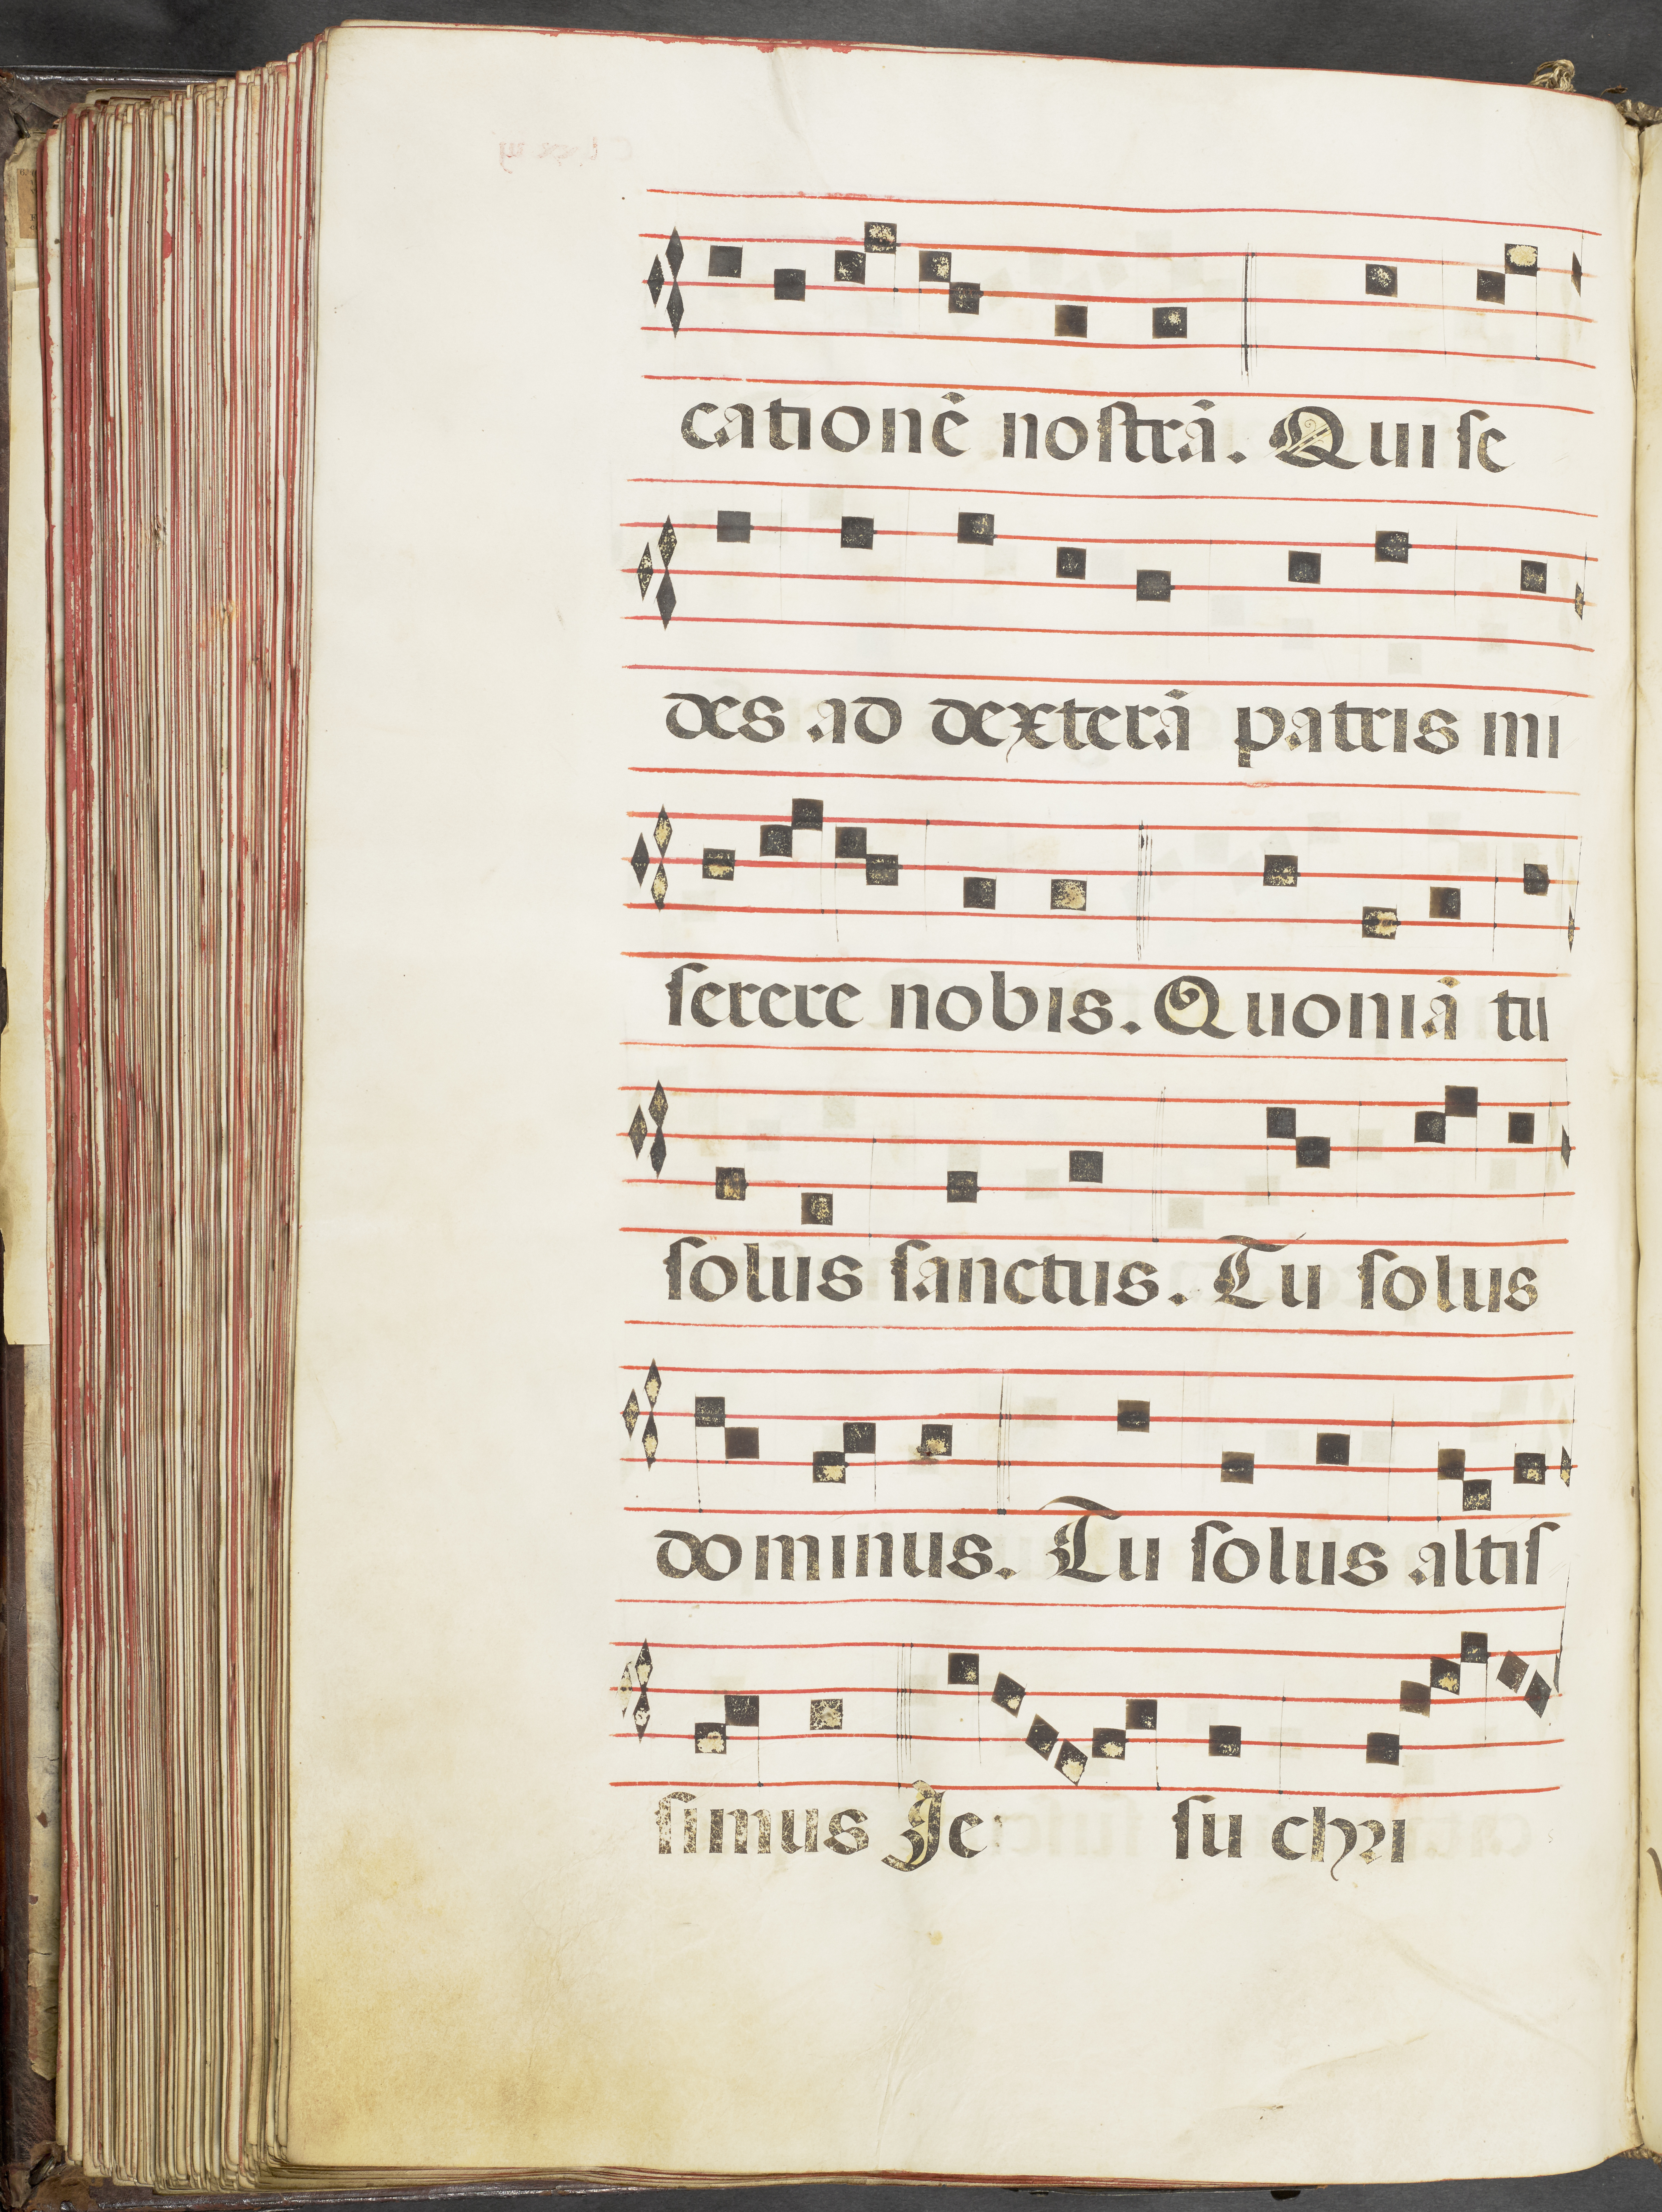 cationē nostrā. Qui se
des ad dexterā patris mi
serere nobis. Quoniā tu
solus sanctus. Tu solus
dominus. Tu solus altis
simus Je su chri